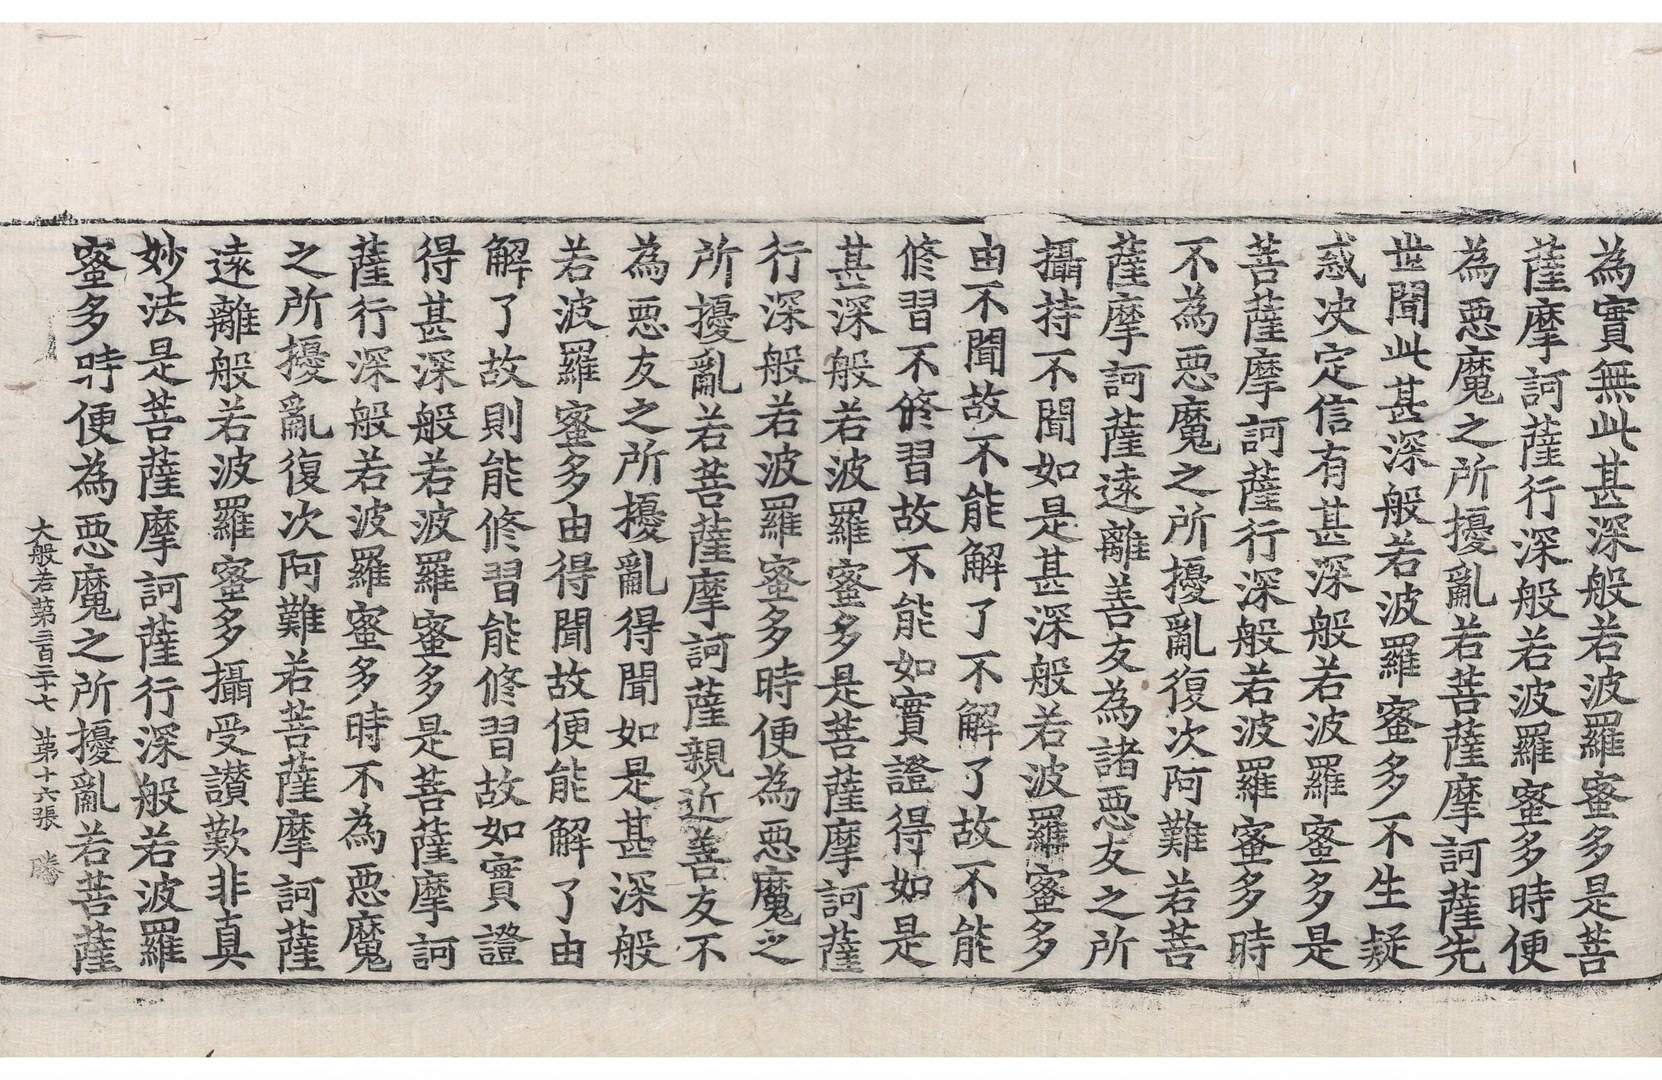 為實無此甚深般若波羅蜜多是菩
薩摩訶薩行深般若波羅蜜多時便
為悪魔之所擾亂若菩薩摩訶薩先
世聞此甚深般若波羅蜜多不生疑
惑决定信有甚深般若波羅蜜多是
菩薩摩訶薩行深般若波羅蜜多時
不為悪魔之所擾亂復次阿難若菩
薩摩訶薩遠離善友為諸悪友之所
攝持不聞如是甚深般若波羅蜜多
由不聞故不能解了不解了故不能
修習不修習故不能如實證得如是
甚深般若波羅蜜多是菩薩摩訶薩
行深般若波羅蜜多時便為悪魔之
所擾亂若菩薩摩訶薩親近善友不
為悪友之所擾亂得聞如是甚深般
若波羅蜜多由得聞故便能解了由
解了故則能修習能修習故如實證
得甚深般若波羅蜜多是菩薩摩訶
薩行深般若波羅蜜多時不為悪魔
之所擾亂復次阿難若菩薩摩訶薩
遠離般若波羅蜜多攝受讃歎非真
妙法是菩薩摩訶薩行深般若波羅
蜜多時便為悪魔之所擾亂若菩薩
大般若第三百三十七 第十六張 騰